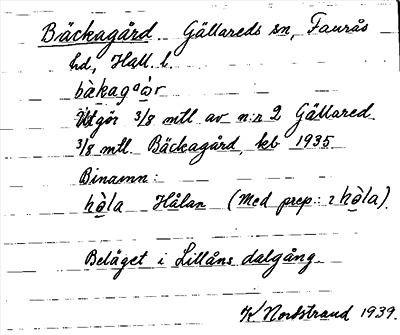 Bäckagård Gällareds sn, Faurås
hd, Hall. l.
bàkagºàr
Utgör 3/8 mtl av n:r 2 Gällared.
3/8 mtl. Bäckagård, kb 1935
Binamn:
hò̱la Hålan (Med prep.: ı hò̱la).
Beläget i Lillåns dalgång.
Nordstrand 1939.